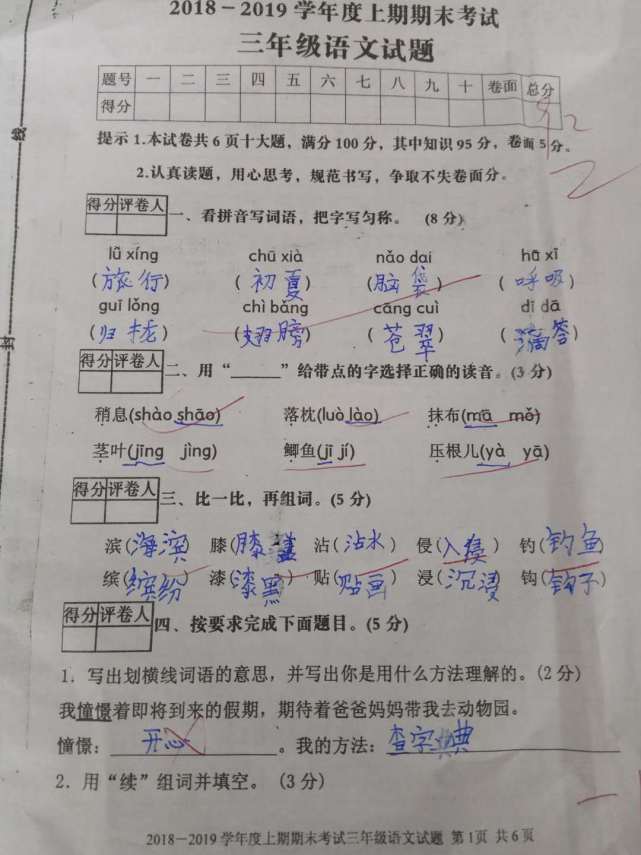 2018－2019学年度上期期末考试
三年级语文试题
题号 一 二 三 四 五 六 七 八 九 十 卷面 总分
得分 92
提示 1.本试卷共6页十大题，满分100分，其中知识95分，卷面5分。
2.认真读题，用心思考，规范书写，争取不失卷面分。
得分 评卷人
一、看拼音写词语，把字写匀称。 (8分)
lǚ xíng chū xià nǎo dai hū xī
(旅行) (初夏) (脑袋) (呼吸)
guī lǒng chì bǎng cāng cuì dī dā
(归拢) (翅膀) (苍翠) (滴答)
得分 评卷人
二、用“______”给带点的字选择正确的读音。(3分)
稍息(shào shāo) 落枕(luò lào) 抹布(mā mǒ)
茎叶(jīng jìng) 鲫鱼(jǐ jí) 压根儿(yà yā)
得分 评卷人
三、比一比，再组词。(5分)
滨(海滨) 膝(膝盖) 沾(沾水) 侵(入侵) 钓(钓鱼)
缤(缤纷) 漆(漆黑) 贴(贴画) 浸(沉浸) 钩(钩子)
得分 评卷人
四、按要求完成下面题目。(5分)
1. 写出划横线词语的意思，并写出你是用什么方法理解的。(2分)
我憧憬着即将到来的假期，期待着爸爸妈妈带我去动物园。
憧憬：开心。我的方法：查字典
2. 用“续”组词并填空。 (3分)
2018－2019学年度上期期末考试三年级语文试题 第1页 共6页